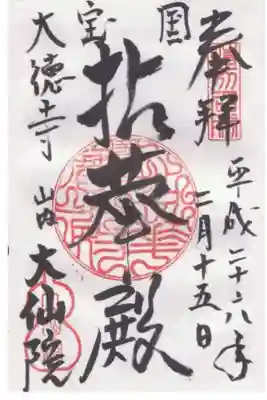 奉拝
平成二十六年
二月十五日
国宝
拈華殿
大徳寺
山内
大仙院